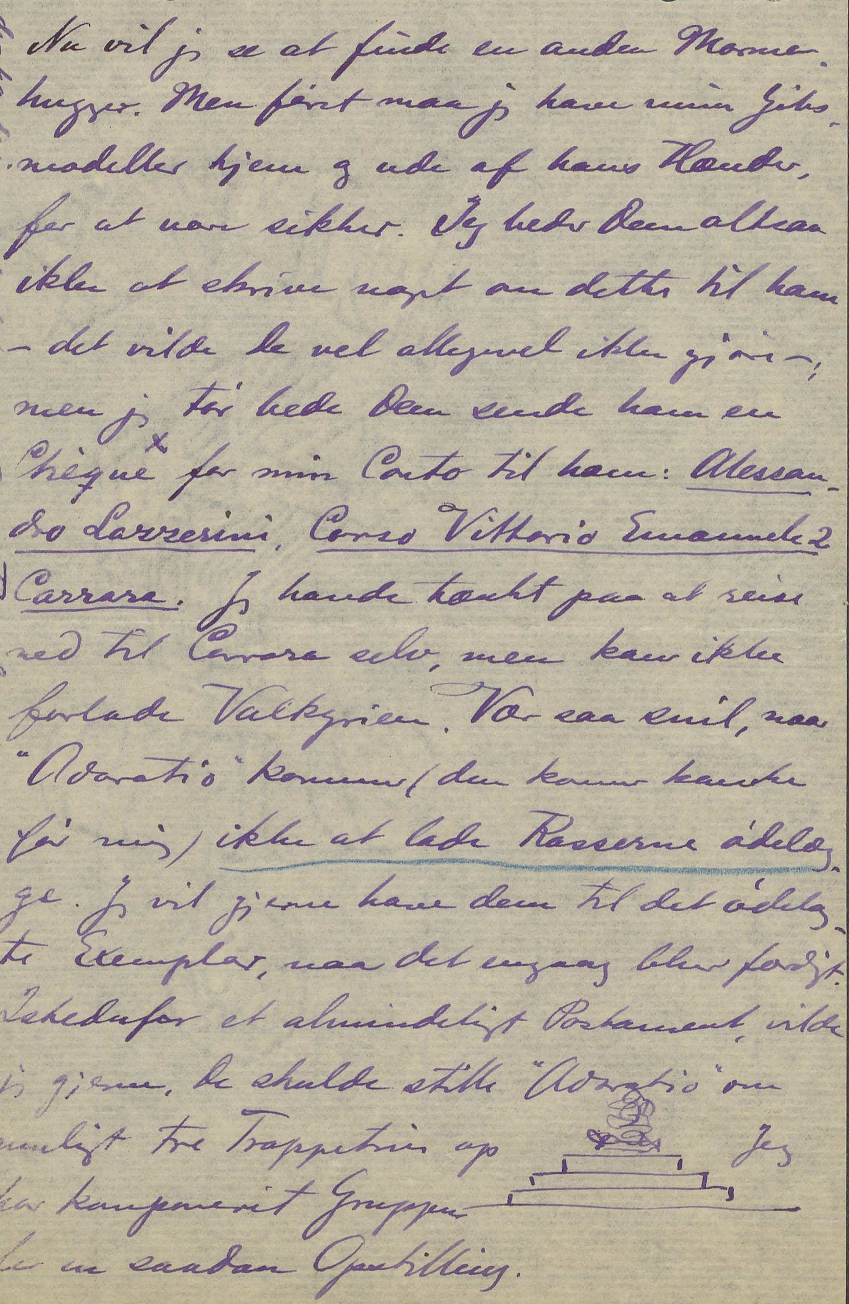 Nu vil jeg se at finde en anden Marmor-
hugger. Men först maa jeg have mine Gibs-
modeller hjem og ude af hans Hænder,
for at være sikker. Jeg beder Dem altsaa
ikke at skrive noget om dette til ham
– det vilde De vel allegevel ikke gjöre –;
men jeg tör bede Dem sende ham en
Chèque x for min Conto til ham: Alessan-
dro Lazzerini, Corso Vittorio Emanuele 2
Carrara. Jeg havde tænkt paa at reise
ned til Carrara selv, men kan ikke
forlade Valkyrien. Vær saa snil, naar
"Adoratio" kommer (den kommer kanske
för mig) ikke at lade Kasserne ödelæg-
ge. Jeg vil gjerne have dem til det ödelag-
te Exemplar, naar det engang bliver færdigt.
Istedenfor et almindeligt Postament, vilde
jeg gjerne, De skulde stille "Adoratio" om
muligt tre Trappetrin op Jeg
har komponerit Gruppen
for en saadan Opstilling.